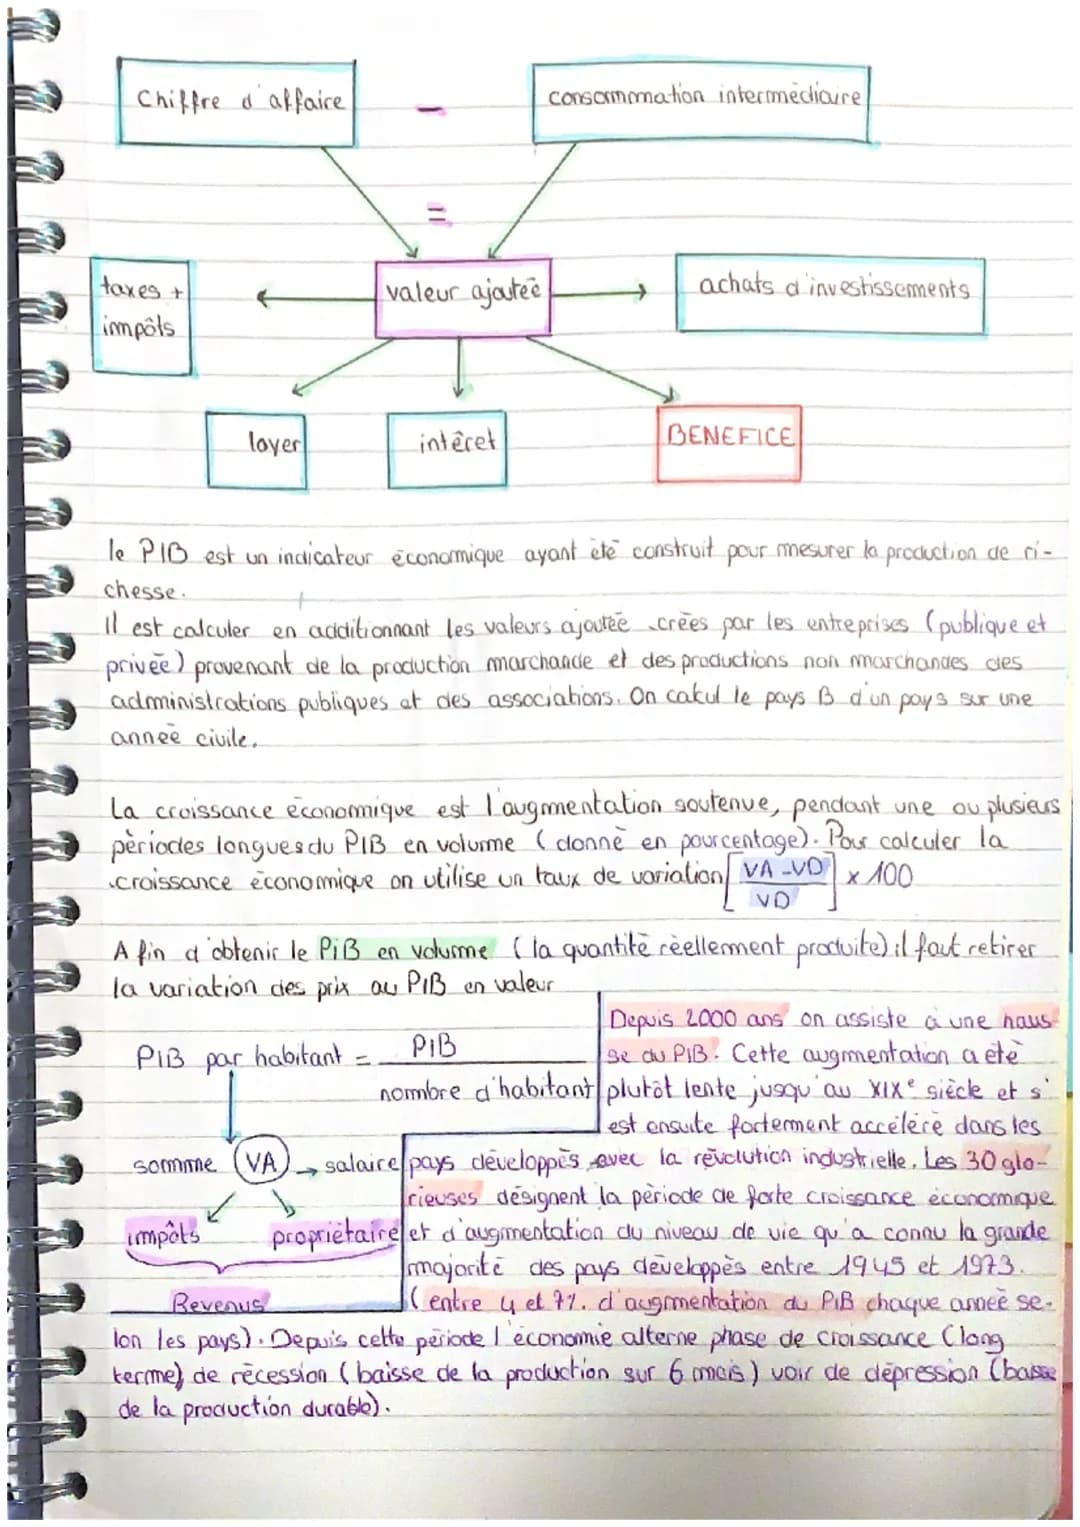 Chiffre d'affaire - consommation intermédiaire
=
taxes +
impôts
valeur ajoutée
achats d'investissements
loyer
intêret
BENEFICE
le PIB est un indicateur économique ayant été construit pour mesurer la production de ri-
chesse.
Il est calculer en additionnant les valeurs ajoutée crées par les entreprises (publique et
privée) provenant de la production marchande et des productions non marchandes des
administrations publiques et des associations. On calcul le pays B d'un pays sur une
année civile.
La croissance économique est l'augmentation soutenue, pendant une ou plusieurs
périodes longues du PIB en volume (donné en pourcentage). Pour calculer la
croissance économique on utilise un taux de variation [VA-VD
VD] x 100
Afin d'obtenir le PiB en volume (la quantité réellement produite) il faut retirer
la variation des prix au PIB en valeur
PIB par habitant = PIB
nombre d'habitant
somme VA → salaire
impôts propriétaire
Revenus
Depuis 2000 ans on assiste à une haus-
se du PIB. Cette augmentation a été
plutôt lente jusqu'au XIXe siècle et s'
est ensuite fortement accéléré dans les
pays développés avec la révolution industrielle. Les 30 glo-
rieuses désignent la période de forte croissance économique
et d'augmentation du niveau de vie qu'a connu la grande
majorité des pays développés entre 1945 et 1973.
(entre 4 et 7%. d'augmentation du PIB chaque année se-
lon les pays). Depuis cette période l'économie alterne phase de croissance (long
terme) de récession (baisse de la production sur 6 mois) voir de dépression (baisse
de la production durable).